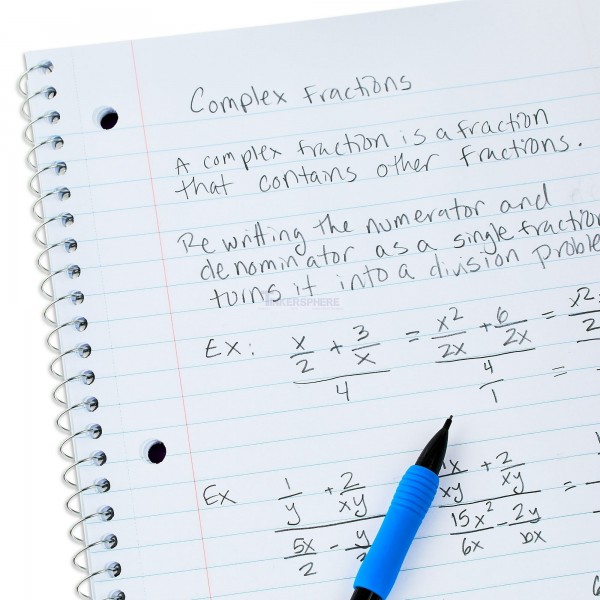 Complex Fractions
A complex fraction is a fraction
that contains other fractions.
Rewriting the numerator and
denominator as a single fraction
turns it into a division
Ex: x/2 + 3/x = x²/2x + 6/2x =
4 4/1 =
Ex 1/y + 2/xy + 2/xy =
5x/2 - 15x²/6x - 2y/